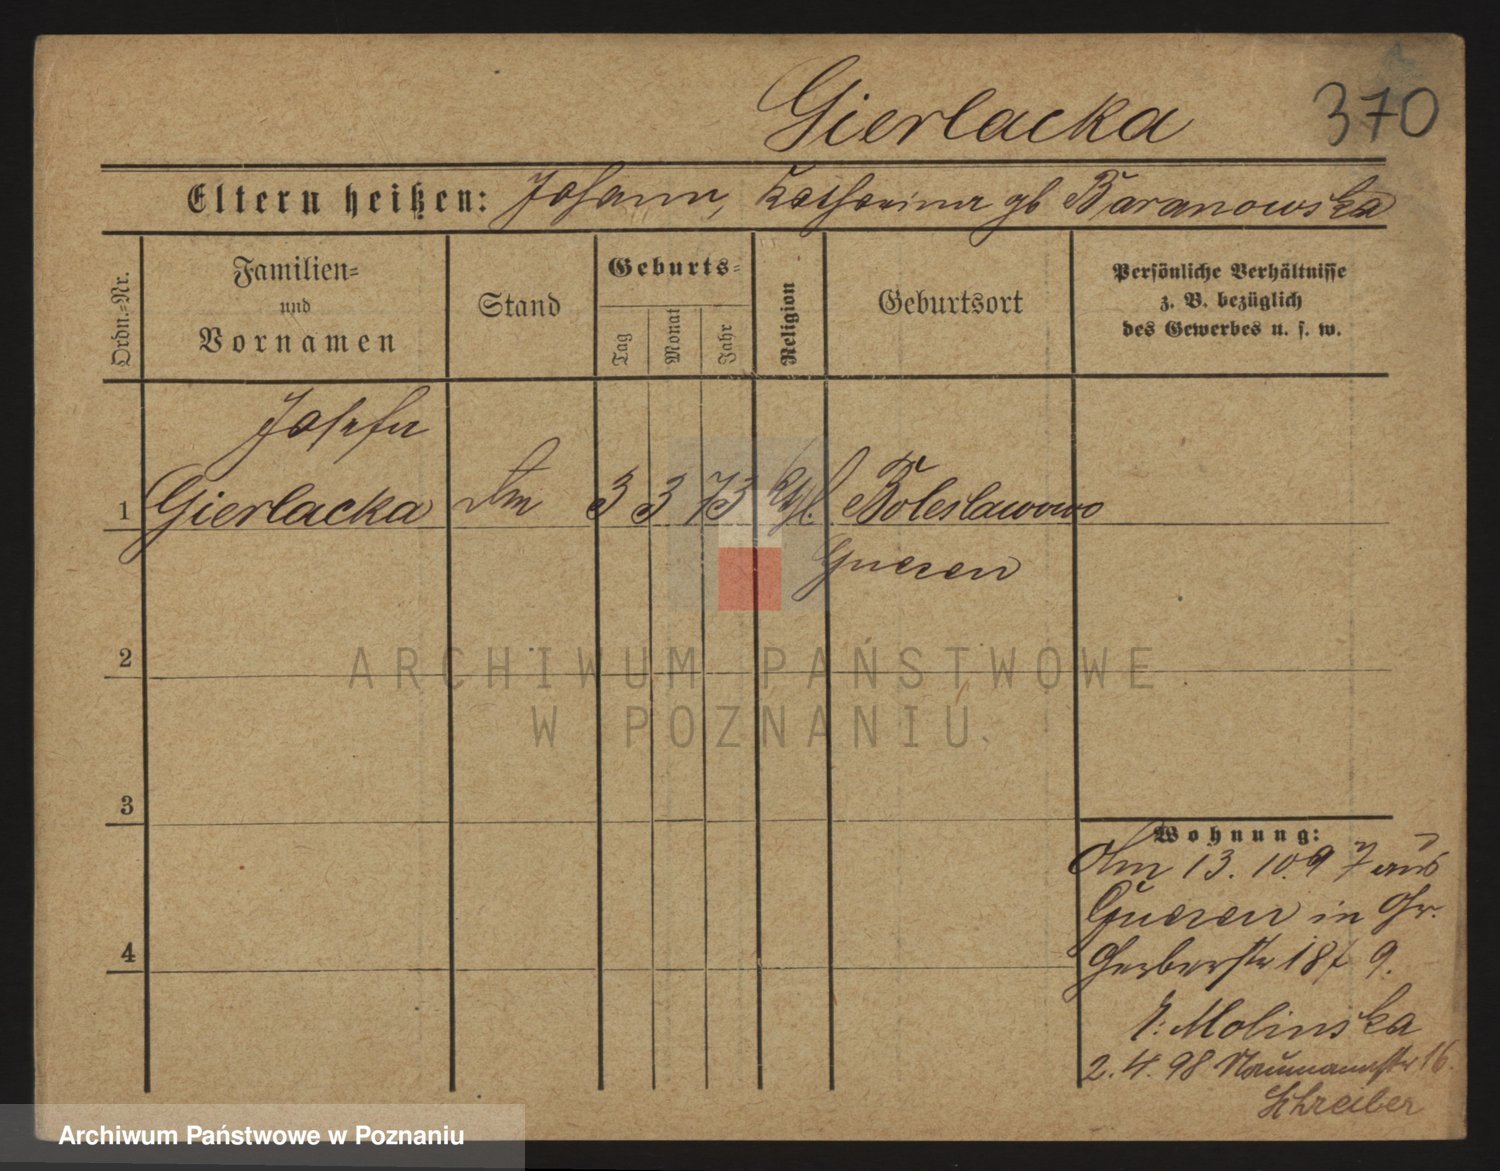 Gierlacka 370
Eltern heißen: Johann, Katharina gb Baranowska
Ordn.=Nr.
Familien=
und
Vornamen
Stand
Geburts=
Tag
Monat
Jahr
Religion
Geburtsort
Persönliche Verhältnisse
z. B. bezüglich
des Gewerbes u. s. w.
Josefa
1 Gierlacka 3 3 73 Boleslawowo
Gnesen
2
ARCHIWUM PAŃSTWOWE
W POZNANIU
3
Wohnung:
13. 10. 97 aus
Gnesen in Gr.
Gerberstr 18 9.
Molinska
4
2. 4. 98 Naumannstr 16.
Schreiber
Archiwum Państwowe w Poznaniu